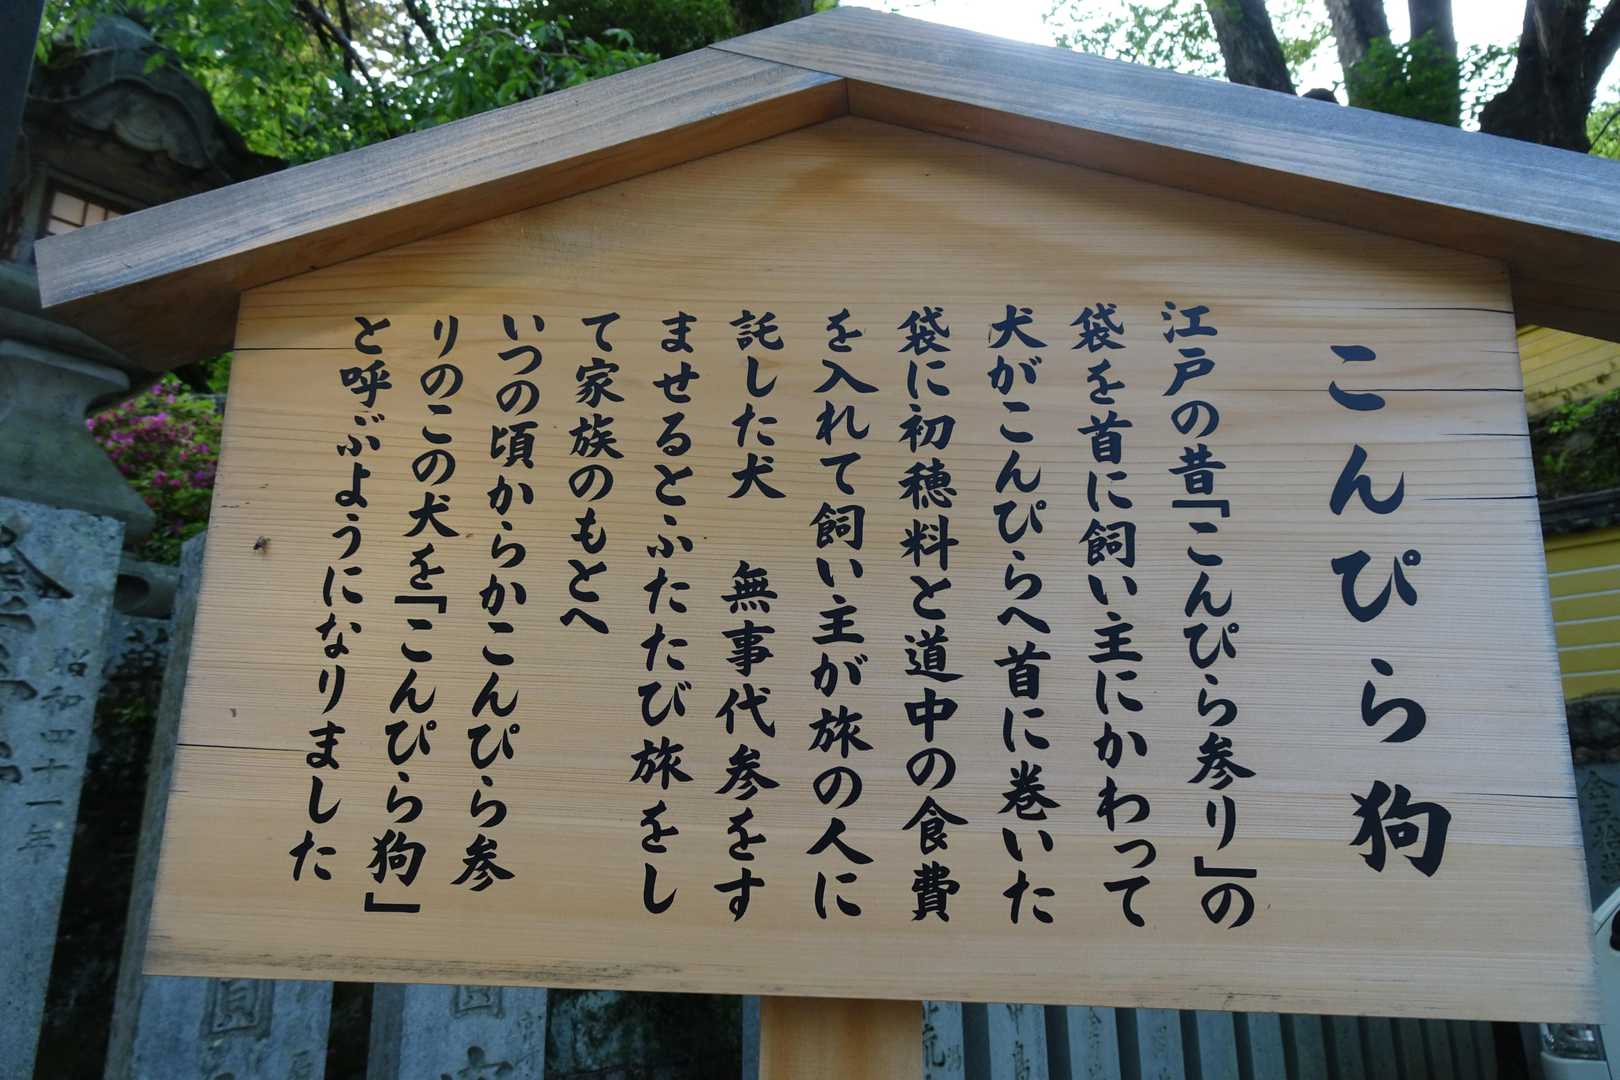 こんぴら狗
江戸の昔「こんぴら参り」の
袋を首に飼い主にかわって
犬がこんぴらへ首に巻いた
袋に初穂料と道中の食費
を入れて飼い主が旅の人に
託した犬　無事代参をす
ませるとふたたび旅をし
て家族のもとへ
いつの頃からかこんぴら参
りのこの犬を「こんぴら狗」
と呼ぶようになりました
昭和四十一年